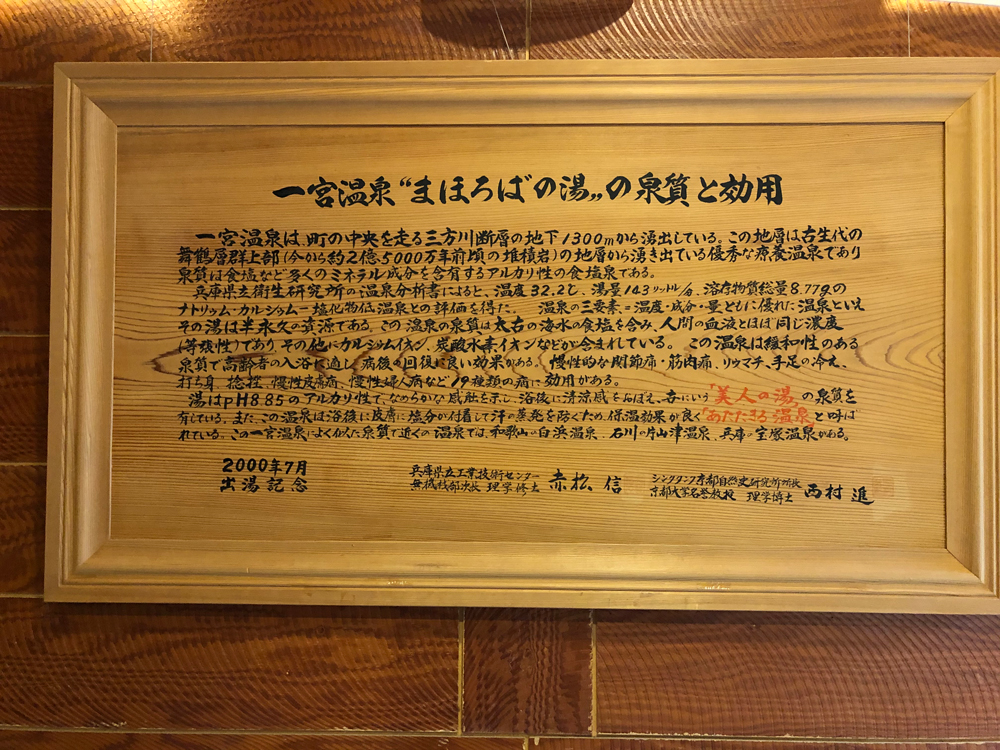 一宮温泉“まほろばの湯„の泉質と効用
一宮温泉は、町の中央を走る三方川断層の地下1300mから湧出している。この地層は古生代の
舞鶴層群上部(今から約2億5000万年前頃の堆積岩)の地層から湧き出ている優秀な療養温泉であり
泉質は食塩など多くのミネラル成分を含有するアルカリ性の食塩泉である。
兵庫県立衛生研究所の温泉分析書によると、温度32.2℃、湯量143リットル/分、溶存物質総量8.77gの
ナトリゥム・カルシゥムー塩化物低温泉との評価を得た。 温泉の三要素=温度・成分・量ともに優れた温泉といえ
その湯は半永久の資源である。この温泉の泉質は太古の海水の食塩を含み、人間の血液とほぼ同じ濃度
(等張性)であり その他にカルシゥムイオン、炭酸水素イオンなどが含まれている。 この温泉は緩和性のある
泉質で高齢者の入浴に適し、病後の回復に良い効果がある。 慢性的な関節痛・筋肉痛、リゥマチ、手足の冷え、
打ち身、捻挫、慢性皮膚病、慢性婦人病など19種類の病に効用がある。
湯はpH8.85のアルカリ性で、なめらかな感触を示し、浴後に清涼感をおぼえ、古にいう「美人の湯」の泉質を
有している。また、この温泉は浴後に皮膚に塩分が付着して汗の蒸発を防ぐため、保温効果が良く「あたたまる温泉」と呼ば
れている。この一宮温泉によく似た泉質で近くの温泉では、和歌山の白浜温泉、石川の片山津温泉、兵庫の宝塚温泉がある。
2000年7月
出湯記念
兵庫県立工業技術センター
無機材部次長 理学修士 赤松 信
シンクタンク京都自然史研究所所長
京都大学名誉教授 理学博士 西村 進